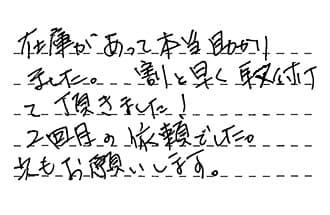 在庫があって本当助かり
ました。 割と早く取付け
て頂きました!
2回目の依頼でした。
次もお願いします。